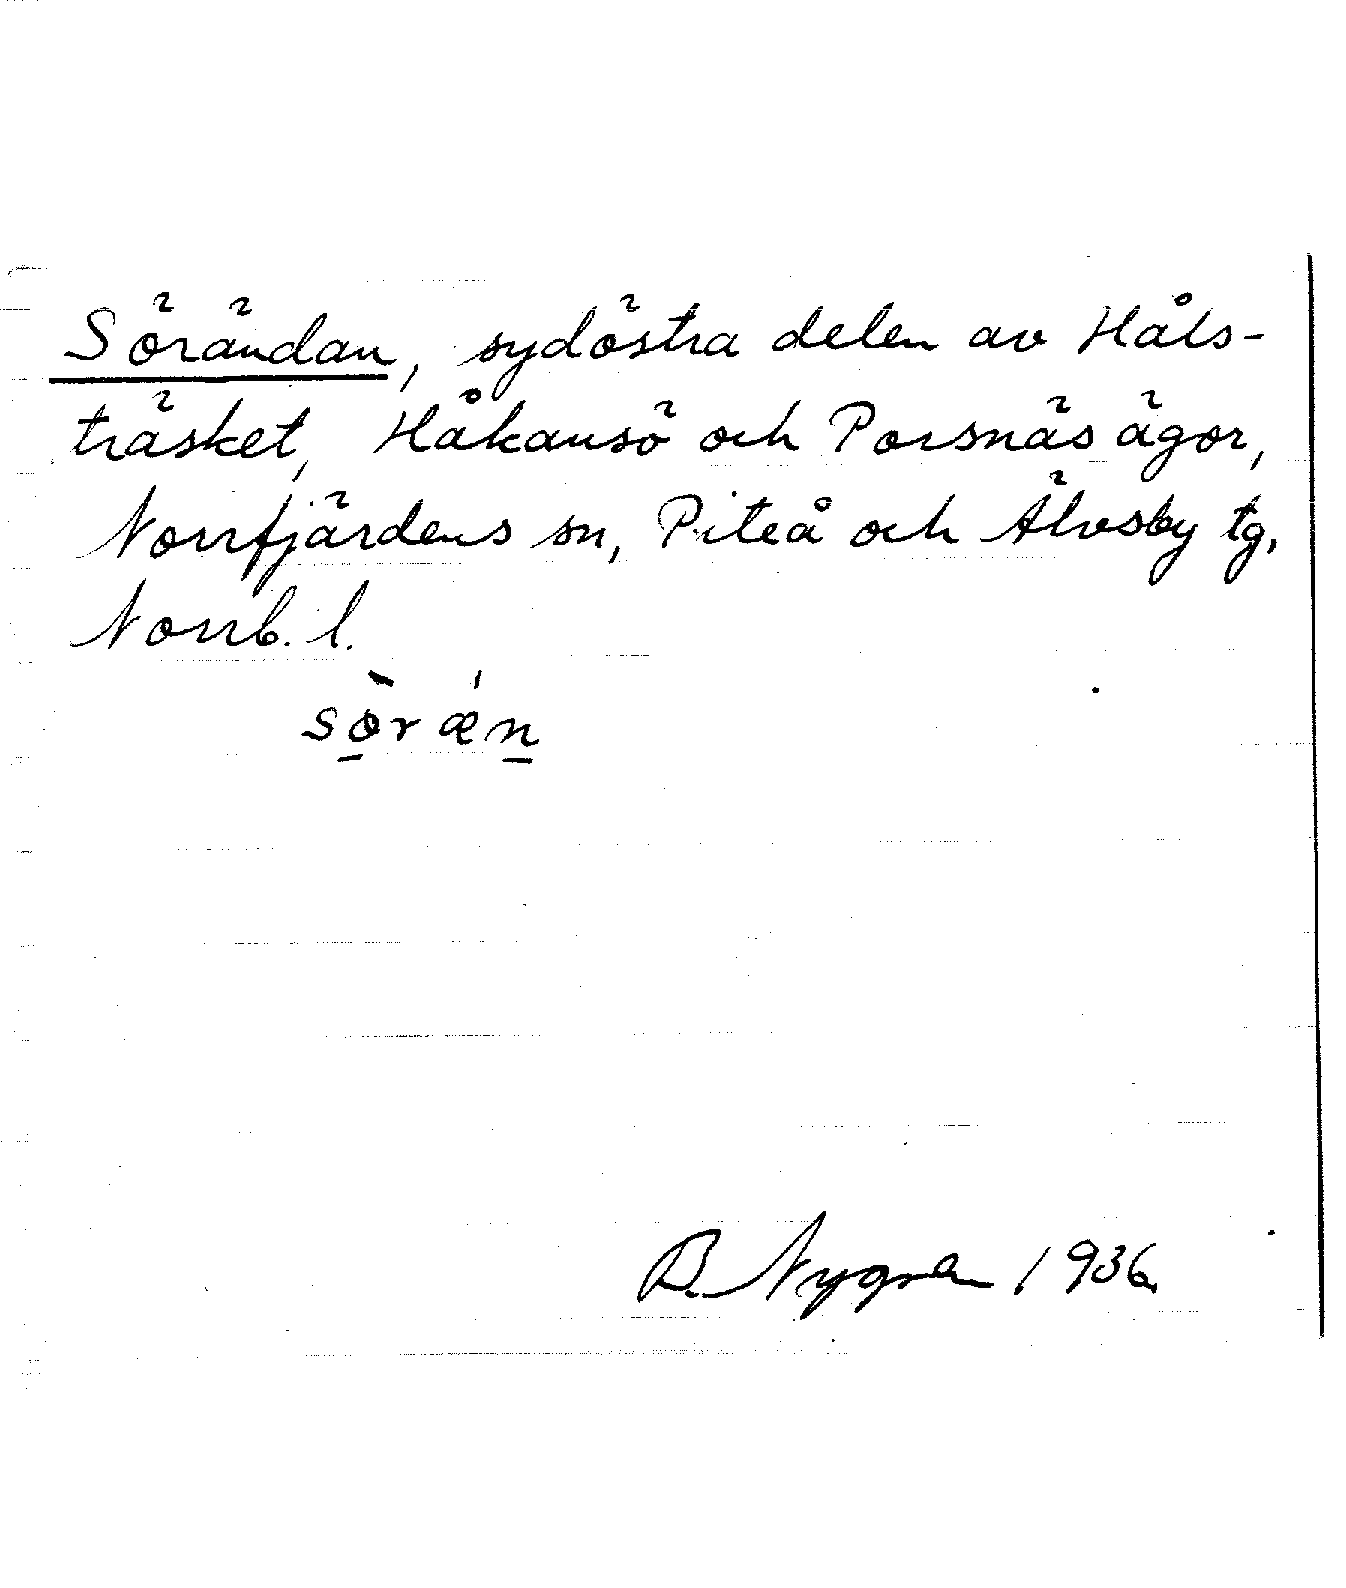 Sörändan, sydöstra delen av Håls-
träsket, Håkansö och Porsnäs ägor,
Norrfjärdens sn, Piteå och Älvsby tg,
Norrb. l.
sø̱̀r ǽṉ
B. Nygren 1936.